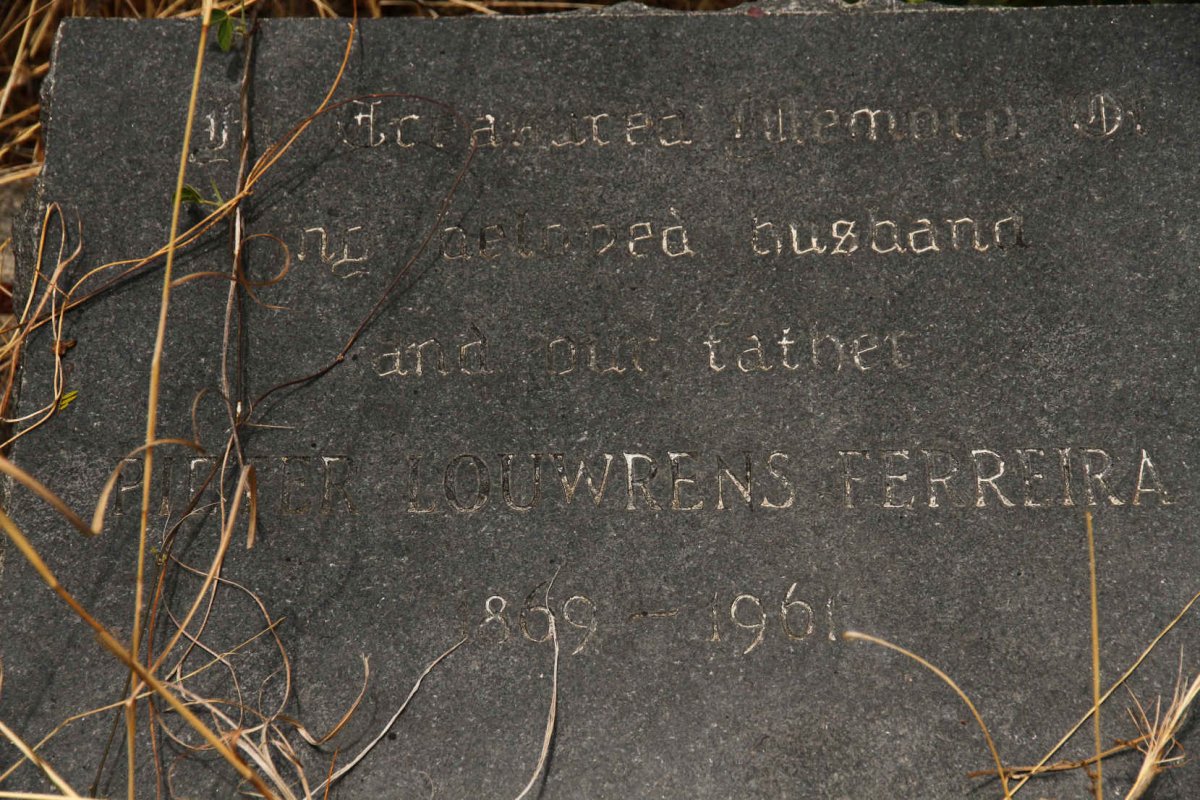 In Treasured Memory Of
my beloved husband
and our father
PIETER LOUWRENS FERREIRA
1869 - 1961